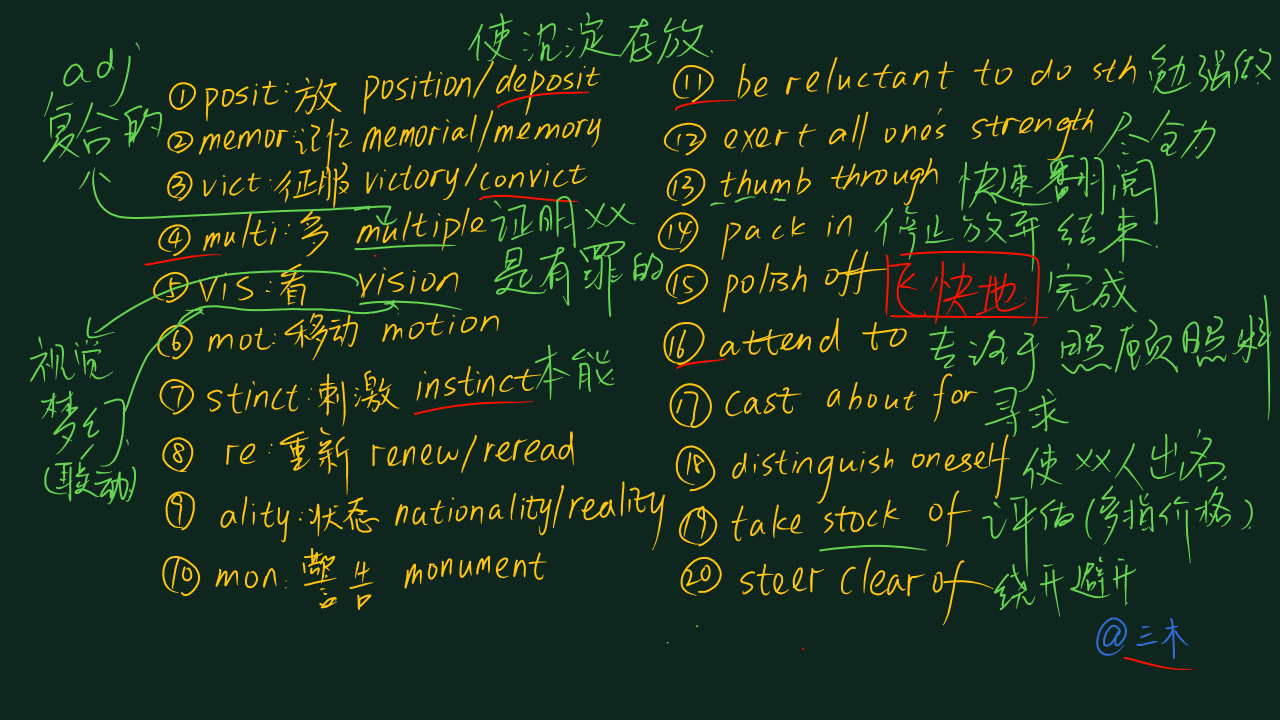 使沉淀存放.
adj
复合的
① posit:放 position/deposit
② memor:记忆 memorial/memory
③ vict:征服 victory/convict
证明××
是有罪的
④ multi:多 multiple
⑤ vis:看 vision
视觉
梦幻
⑥ mot:移动 motion
⑦ stinct:刺激 instinct 本能
⑧ re:重新 renew/reread
⑨ ality:状态 nationality/reality
⑩ mon:警告 monument
⑪ be reluctant to do sth 勉强做
⑫ exert all one's strength 尽全力
⑬ thumb through 快速翻阅
⑭ pack in 停止放弃 结束.
⑮ polish off 飞快地 完成
⑯ attend to 专注于 照顾照料
⑰ cast about for 寻求
⑱ distinguish oneself 使××人出名.
⑲ take stock of 评估(多指价格)
⑳ steer clear of 绕开避开
@三木